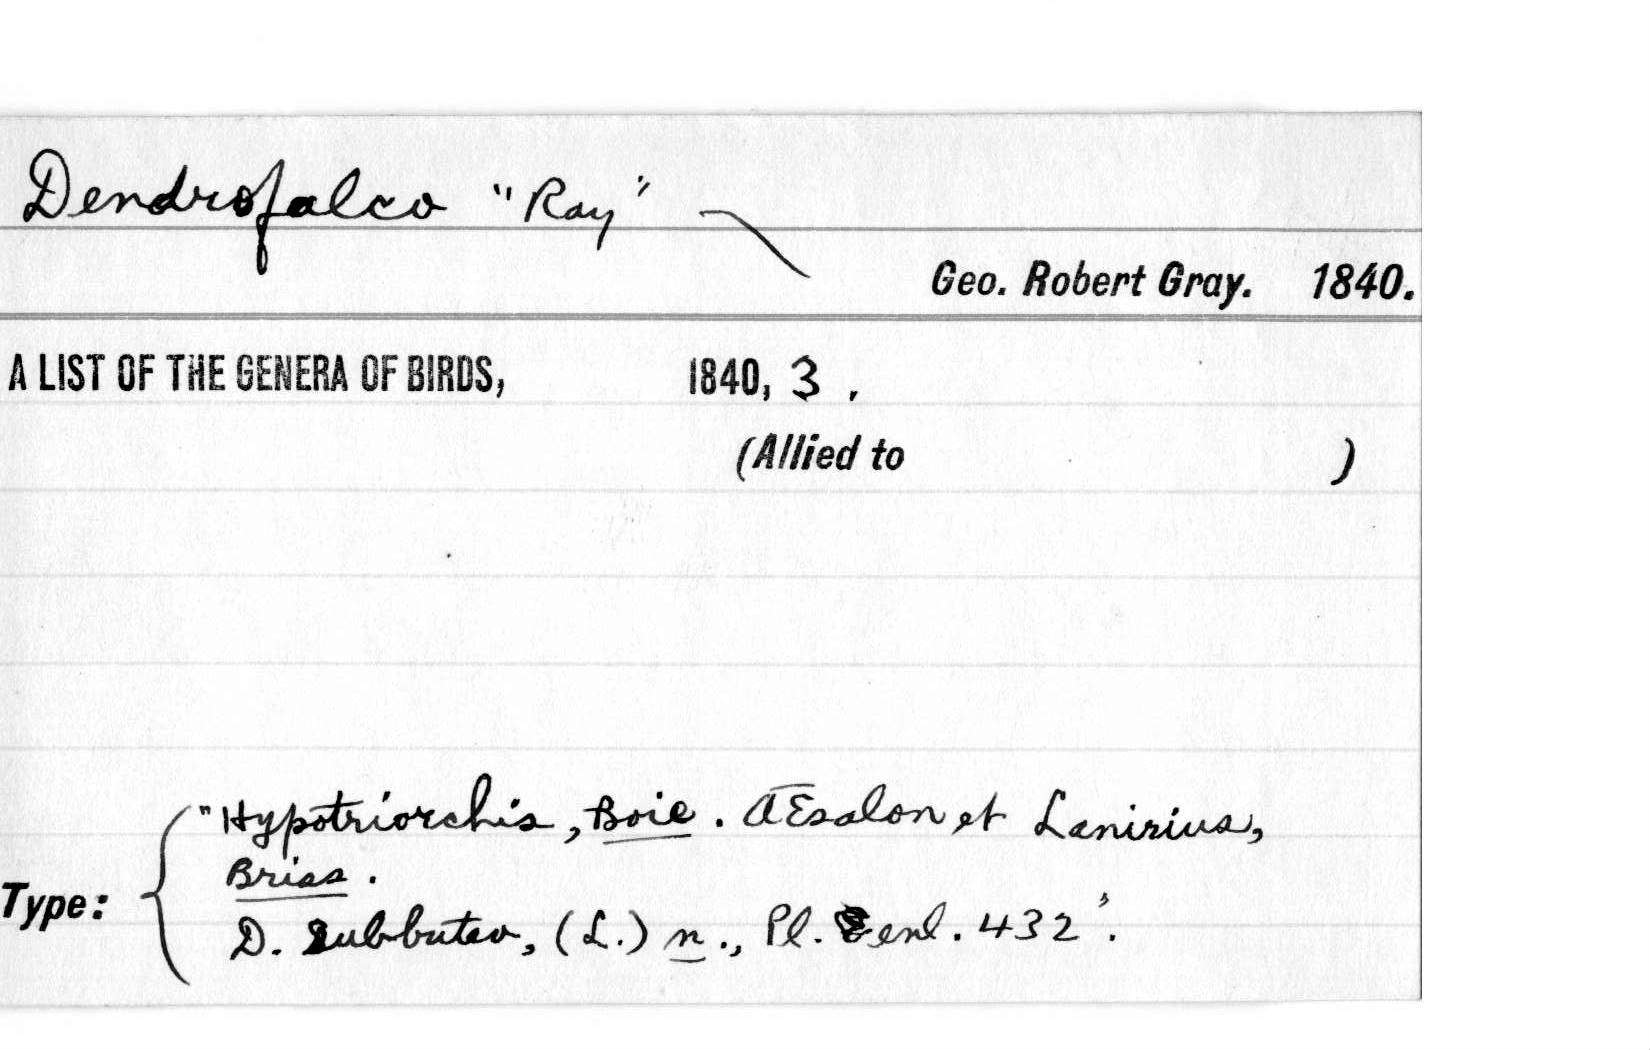 Dendrofalco "Ray"
Geo. Robert Gray. 1840.
A LIST OF THE GENERA OF BIRDS, 1840, 3 .
(Allied to )
Type:
"Hypotriorchis, Boie. Æsalon et Lanirius,
Briss.
D. subbuteo, (L.) n., Pl. enl. 432".